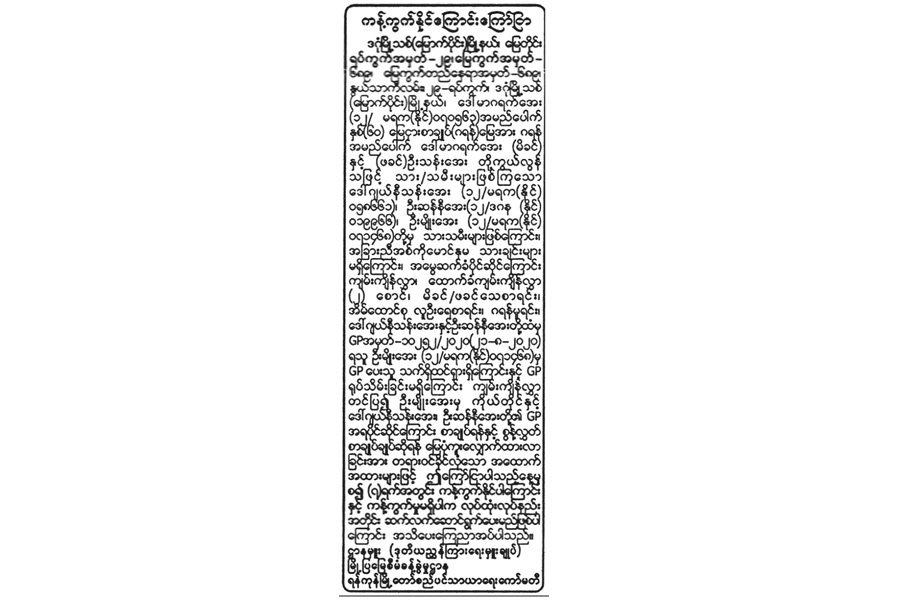 ကန့်ကွက်နိုင်ကြောင်းကြော်ငြာ
ဒဂုံမြို့သစ်(မြောက်ပိုင်း)မြို့နယ်၊ မြေတိုင်း
ရပ်ကွက်အမှတ်-၂၉၊မြေကွက်အမှတ်-
၆၈၉၊ မြေကွက်တည်နေရာအမှတ်-၆၈၉၊
နွယ်သာကီလမ်း၊၂၉-ရပ်ကွက်၊ ဒဂုံမြို့သစ်
(မြောက်ပိုင်း)မြို့နယ်၊ ဒေါ်မာဂရက်အေး
(၁၂/ မရက(နိုင်)၀၇၀၅၆၃)အမည်ပေါက်
နှစ်(၆၀) မြေငှားစာချုပ်(ဂရန်)မြေအား ဂရန်
အမည်ပေါက် ဒေါ်မာဂရက်အေး (မိခင်)
နှင့် (ဖခင်)ဦးသန်းအေး တို့ကွယ်လွန်
သဖြင့် သား/သမီးများဖြစ်ကြသော
ဒေါ်ဂျယ်နီသန်းအေး (၁၂/မရက(နိုင်)
၀၅၈၆၆၁)၊ ဦးဆန်နီအေး(၁၂/ဒဂန (နိုင်)
၀၁၉၉၆၆)၊ ဦးမျိုးအေး (၁၂/မရက(နိုင်)
၀၇၁၄၆၈)တို့မှ သားသမီးများဖြစ်ကြောင်း၊
အခြားညီအစ်ကိုမောင်နှမ သားချင်းများ
မရှိကြောင်း၊ အမွေဆက်ခံပိုင်ဆိုင်ကြောင်း
ကျမ်းကျိန်လွှာ၊ ထောက်ခံကျမ်းကျိန်လွှာ
(၂) စောင်၊ မိခင်/ဖခင်သေစာရင်း၊
အိမ်ထောင်စု လူဦးရေစာရင်း၊ ဂရန်မူရင်း၊
ဒေါ်ဂျယ်နီသန်းအေးနှင့်ဦးဆန်နီအေးတို့ထံမှ
GPအမှတ်-၁၀၂၅၂/၂၀၂၀(၂၁-၈-၂၀၂၀)
ရသူ ဦးမျိုးအေး (၁၂/မရက(နိုင်)၀၇၁၄၆၈)မှ
GP ပေးသူ သက်ရှိထင်ရှားရှိကြောင်းနှင့် GP
ရုပ်သိမ်းခြင်းမရှိကြောင်း ကျမ်းကျိန်လွှာ
တင်ပြ၍ ဦးမျိုးအေးမှ ကိုယ်တိုင်နှင့်
ဒေါ်ဂျယ်နီသန်းအေး၊ ဦးဆန်နီအေးတို့၏ GP
အရပိုင်ဆိုင်ကြောင်း စာချုပ်ရန်နှင့် စွန့်လွှတ်
စာချုပ်ချုပ်ဆိုရန် မြေပုံကူးလျှောက်ထားလာ
ခြင်းအား တရားဝင်ခိုင်လုံသော အထောက်
အထားများဖြင့် ဤကြော်ငြာပါသည့်နေ့မှ
စ၍ (၇)ရက်အတွင်း ကန့်ကွက်နိုင်ပါကြောင်း
နှင့် ကန့်ကွက်မှုမရှိပါက လုပ်ထုံးလုပ်နည်း
အတိုင်း ဆက်လက်ဆောင်ရွက်ပေးမည်ဖြစ်ပါ
ကြောင်း အသိပေးကြေညာအပ်ပါသည်။
ဌာနမှူး (ဒုတိယညွှန်ကြားရေးမှူးချုပ်)
မြို့ပြမြေစီမံခန့်ခွဲမှုဌာန
ရန်ကုန်မြို့တော်စည်ပင်သာယာရေးကော်မတီ